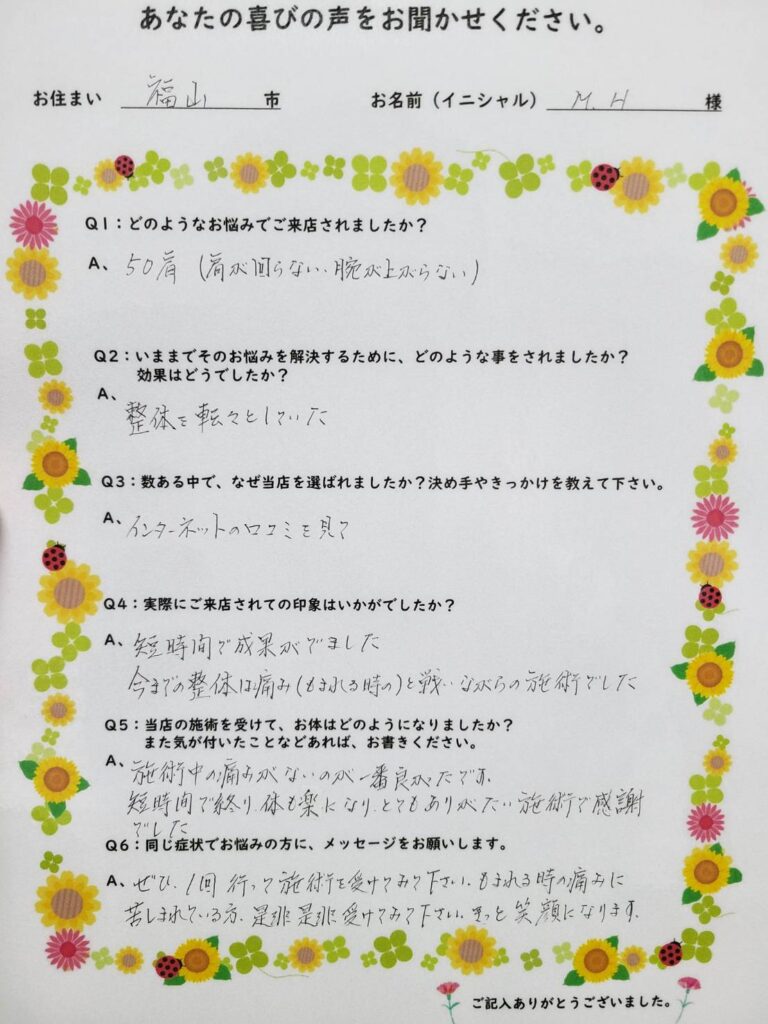 あなたの喜びの声をお聞かせください。
お住まい 福山 市 お名前（イニシャル） M.H 様
Q1：どのようなお悩みでご来店されましたか？
A、50肩（肩が回らない、腕が上がらない）
Q2：いままでそのお悩みを解決するために、どのような事をされましたか？
効果はどうでしたか？
A、
整体を転々としていた
Q3：数ある中で、なぜ当店を選ばれましたか？決め手やきっかけを教えて下さい。
A、インターネットの口コミを見て
Q4：実際にご来店されての印象はいかがでしたか？
A、短時間で成果がでました
今までの整体は痛み（もまれる時の）と戦いながらの施術でした
Q5：当店の施術を受けて、お体はどのようになりましたか？
また気が付いたことなどあれば、お書きください。
A、施術中の痛みがないのが一番良かったです。
短時間で終り、体も楽になり、とてもありがたい施術で感謝
でした
Q6：同じ症状でお悩みの方に、メッセージをお願いします。
A、ぜひ、1回行って施術を受けてみて下さい。もまれる時の痛みに
苦しまれている方、是非是非受けてみて下さい。きっと笑顔になります。
ご記入ありがとうございました。